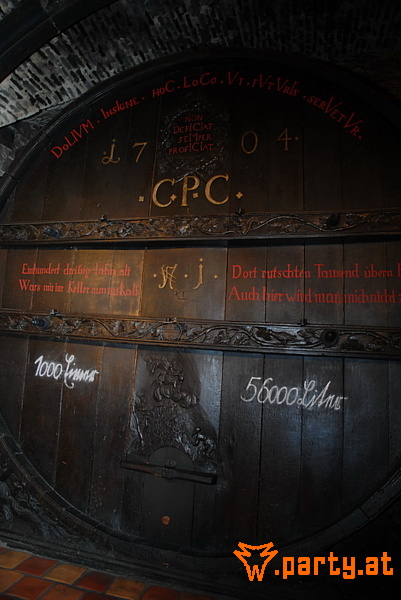 DoLIVM. INSIGNE. HoC. LoCo. VT. FVTVRIS. SERVETVR.
NON
DEFICIAT
SEMPER
PROFICIAT
1704.
·C·P·C·
Einhundert dreissig Jahr alt
Wars mir im Keller nun zu kalt
Dort rutschten Tausend übern
Auch hier wird man mich nicht
1000 Eimer
56000 Liter
w.party.at